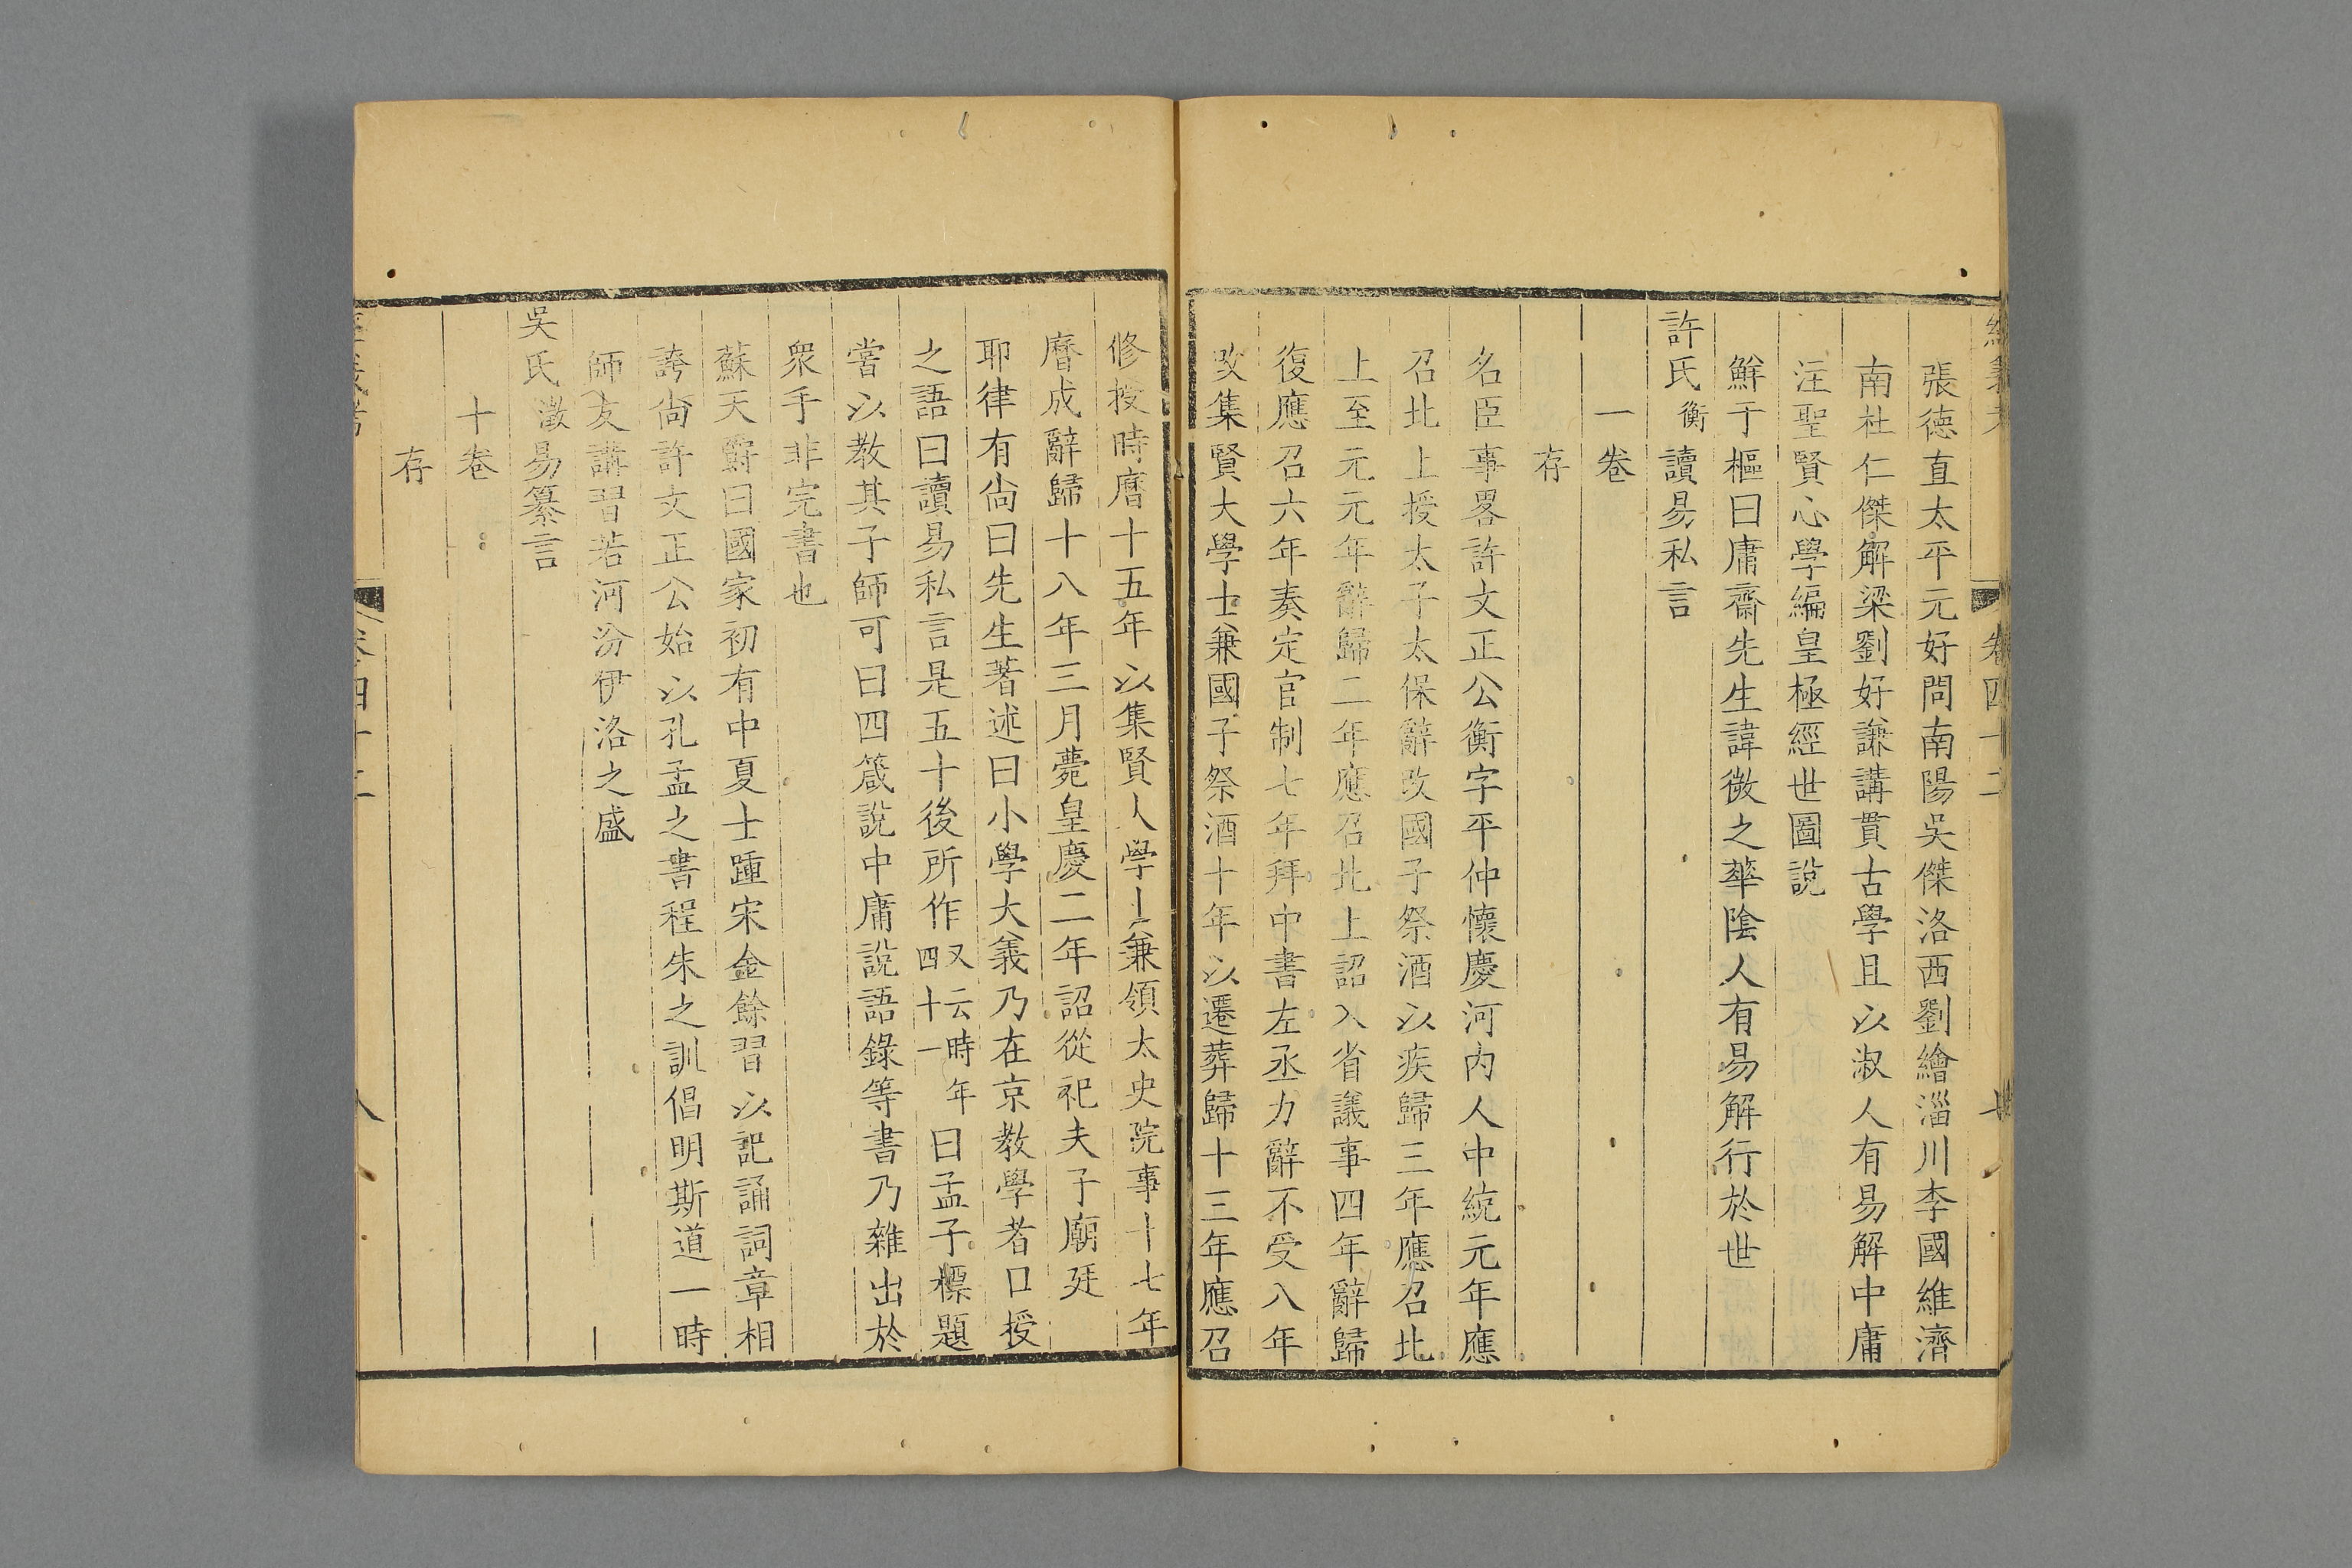 經義考 卷四十二
張德直太平元好問南陽吳傑洛西劉繪淄川李國維濟
南杜仁傑解梁劉好謙講貫古學且以淑人有易解中庸
注聖賢心學編皇極經世圖說
鮮于樞曰庸齋先生諱微之華陰人有易解行於世
許氏衡讀易私言
一卷
存
名臣事畧許文正公衡字平仲懷慶河內人中統元年應
召北上授太子太保辭改國子祭酒以疾歸三年應召北
上至元元年辭歸二年應召北上詔入省議事四年辭歸
復應召六年奏定官制七年拜中書左丞力辭不受八年
改集賢大學士兼國子祭酒十年以遷葬歸十三年應召
修授時曆十五年以集賢大學士兼領太史院事十七年
曆成辭歸十八年三月薨皇慶二年詔從祀夫子廟廷
耶律有尚曰先生著述曰小學大義乃在京教學者口授
之語曰讀易私言是五十後所作又云時年四十一曰孟子標題
嘗以教其子師可曰四箴說中庸說語錄等書乃雜出於
衆手非完書也
蘇天爵曰國家初有中夏士踵宋金餘習以記誦詞章相
誇尚許文正公始以孔孟之書程朱之訓倡明斯道一時
師友講習若河汾伊洛之盛
吳氏澂易纂言
十卷
存
卷四十二 八